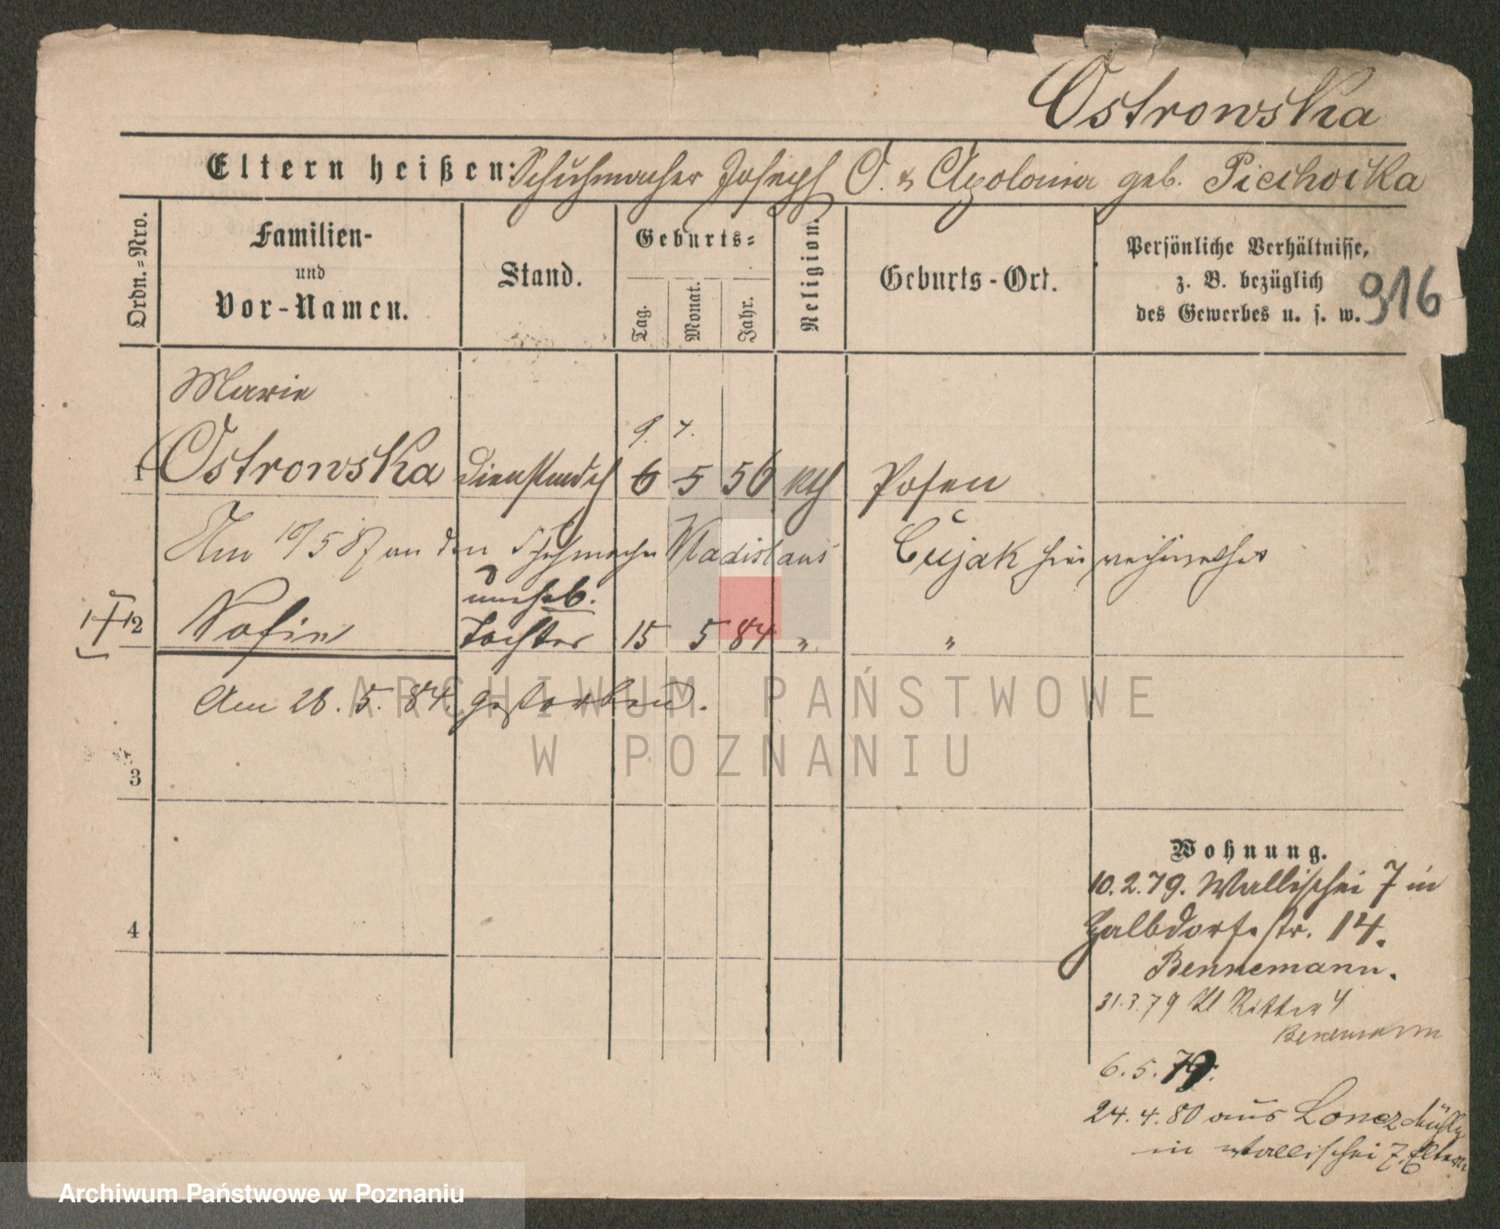 Ostrowska
Eltern heißen: Schuhmacher Joseph O. & Apolonia geb. Piechocka
Ordn.-Nro.
Familien-
und
Vor-Namen.
Stand.
Geburts-
Tag.
Monat.
Jahr.
Religion.
Geburts-Ort.
Persönliche Verhältnisse,
z. B. bezüglich
des Gewerbes u. s. w.
916
Marie
9. 7.
1 Ostrowska Dienstmdch 6 5 56 kth Posen
Am 10/5 87 an den Schuhmacher Wladislaus Cujak hier
uneheb.
2 Sofie Tochter 15 5 84 " "
Am 28. 5. 84. gestorben.
3
4
Wohnung.
10.2.79. Wallischei 7 in
Halbdorfstr. 14.
Bennemann.
31.3.79 Kl Ritter 4
Bennemann
6.5.79.
24.4.80 aus
in Wallischei 7. Eltern
ARCHIWUM PAŃSTWOWE
W POZNANIU
Archiwum Państwowe w Poznaniu